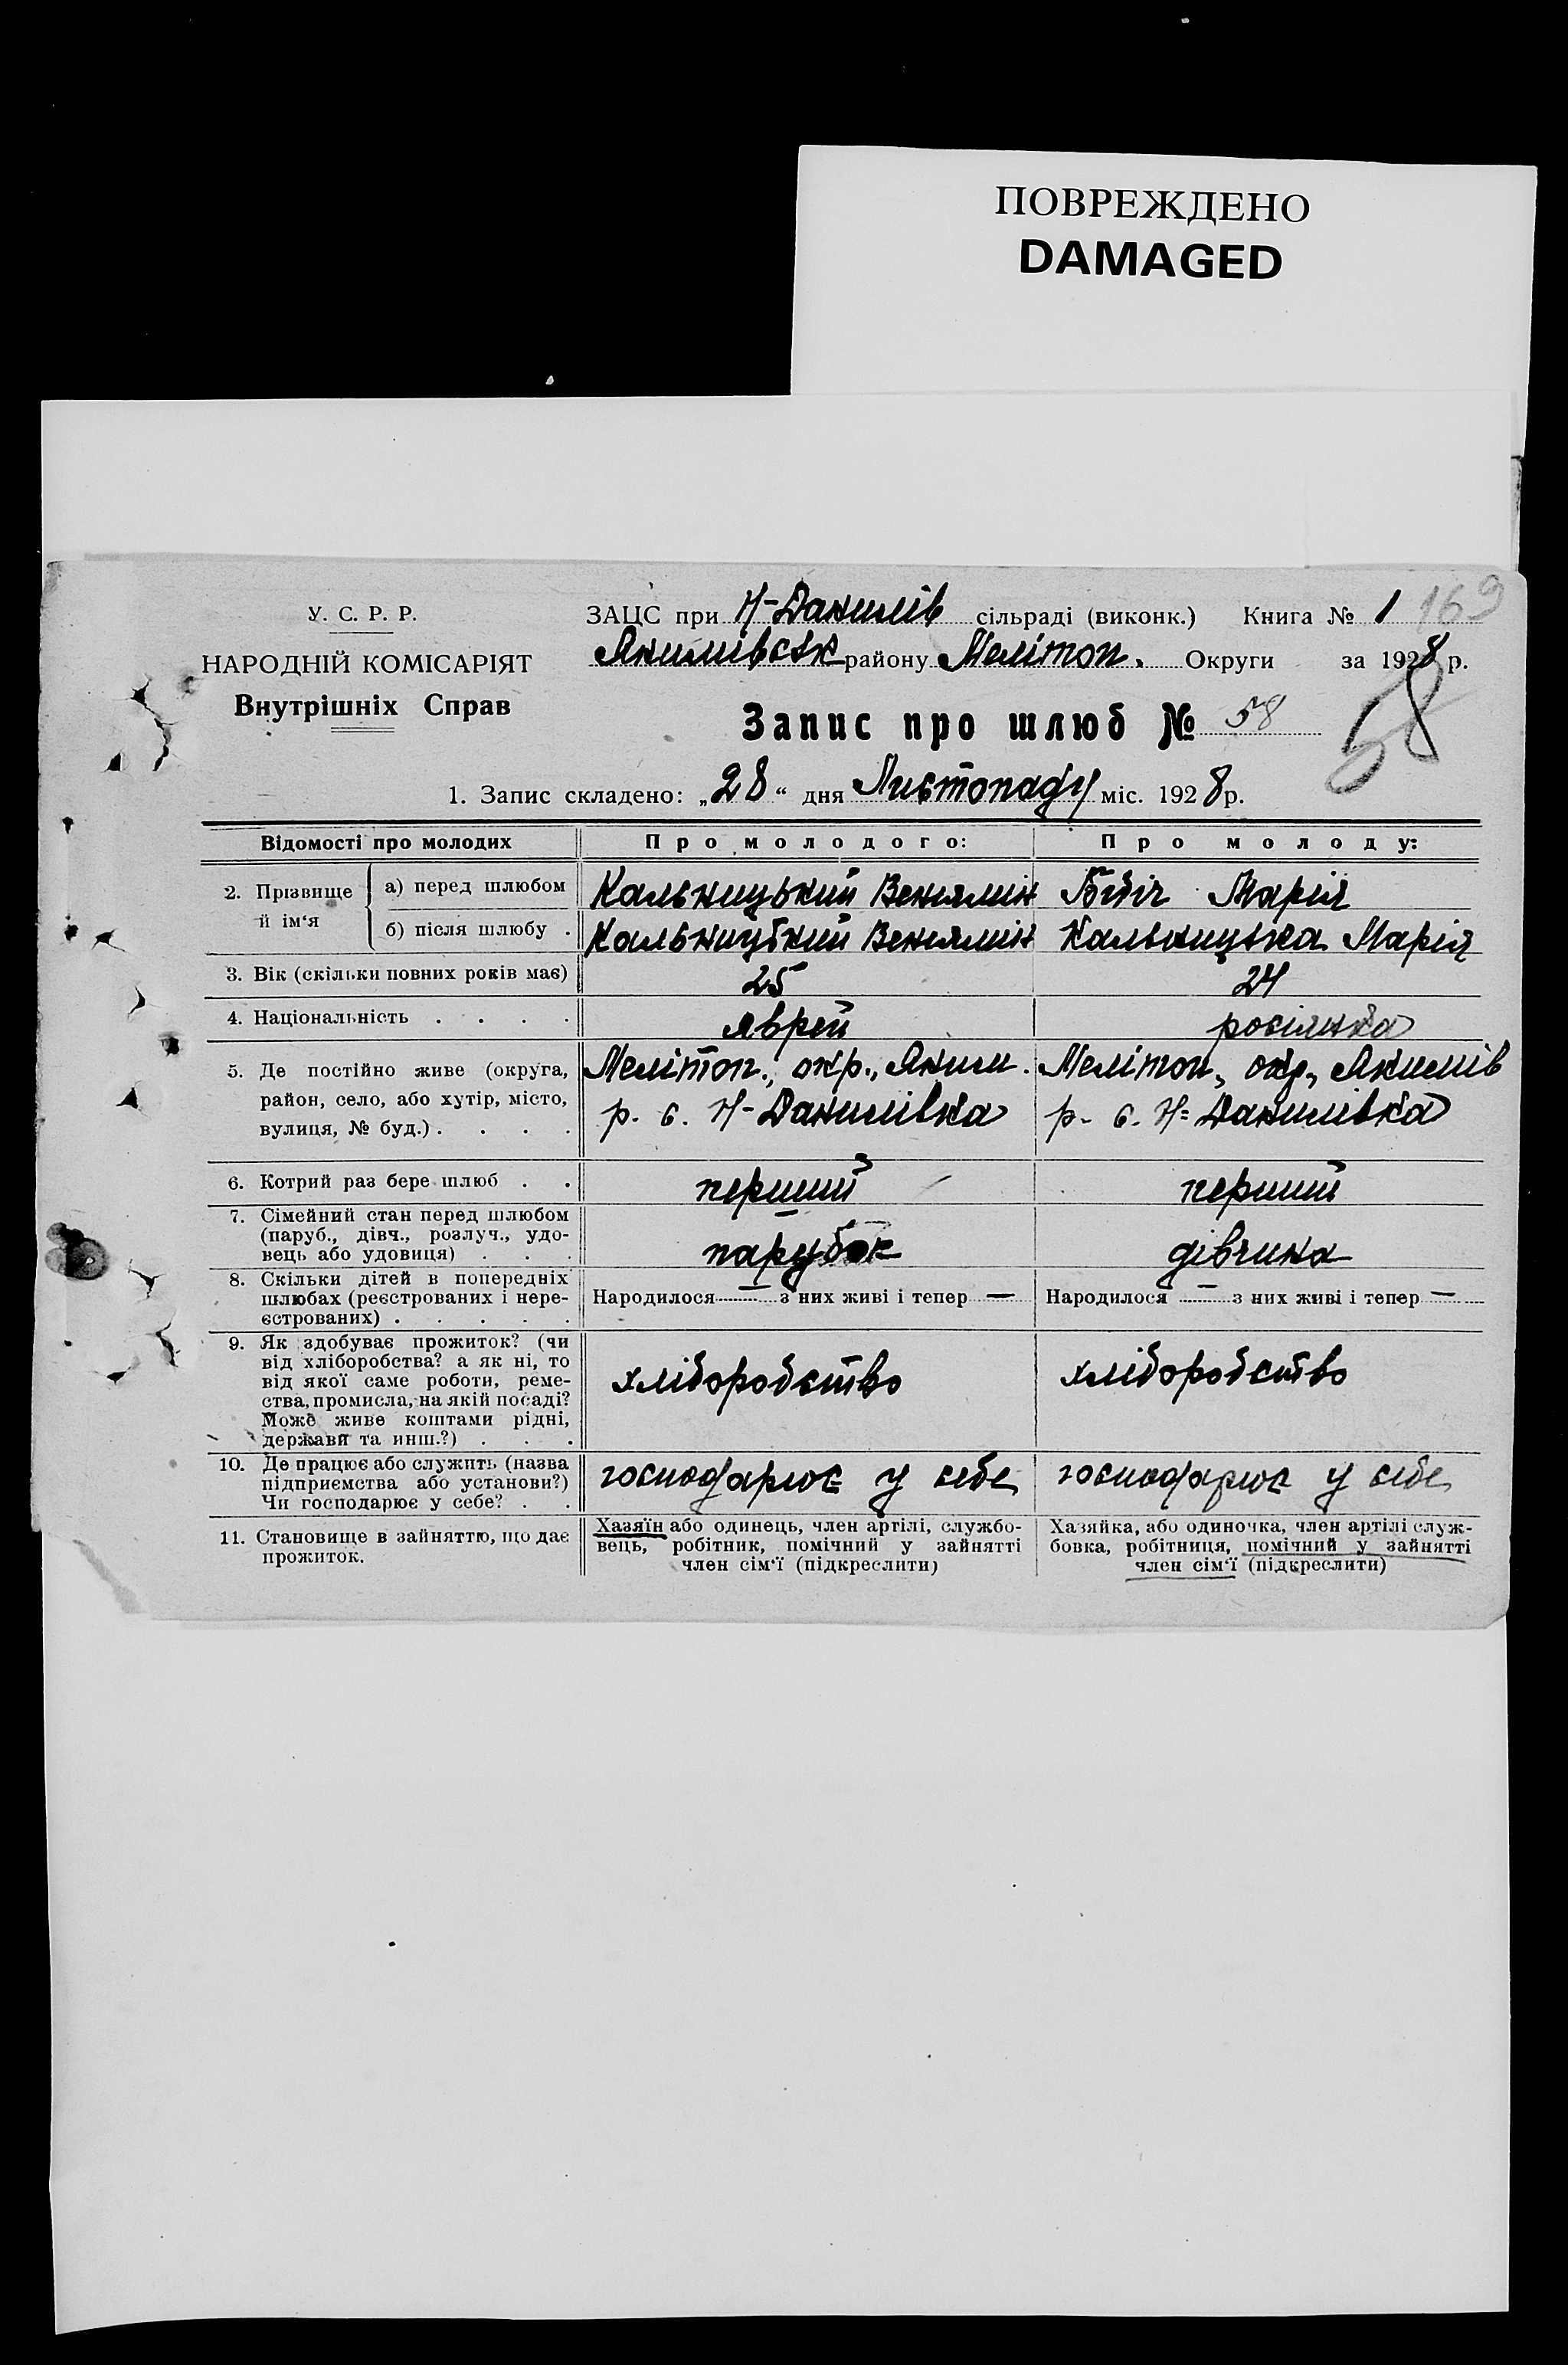 ПОВРЕЖДЕНО
DAMAGED
У. С. Р. Р.
НАРОДНІЙ КОМІСАРІЯТ
Внутрішніх Справ
ЗАЦС при Н-Данилів сільраді (виконк.) Книга № 1 169
Якимівськ району Мелітоп. Округи за 1928 р.
Запис про шлюб № 58
58
1. Запис складено: „28“ дня Листопаду міс. 1928 р.
Відомості про молодих Про молодого: Про молоду:
2. Прізвище й ім‘я а) перед шлюбом Кальницький Венямин Бідіч Марія
б) після шлюбу . Кальницький Венямин Кальницька Марія
3. Вік (скільки повних років має) 25 24
4. Національність . . . . яврей росіянка
5. Де постійно живе (округа, Мелітоп., окр., Яким. Мелітоп., окр., Якимів
район, село, або хутір, місто, р. с. Н-Данилівка р. с. Н-Данилівка
вулиця, № буд.) . . . .
6. Котрий раз бере шлюб . . перший перший
7. Сімейний стан перед шлюбом
(паруб., дівч., розлуч., удо-
вець або удовиця) . . . парубок дівчина
8. Скільки дітей в попередніх
шлюбах (реєстрованих і нере- Народилося — з них живі і тепер — Народилося — з них живі і тепер —
єстрованих) . . . . .
9. Як здобуває прожиток? (чи
від хліборобства? а як ні, то
від якої саме роботи, реме- хліборобство хліборобство
ства, промисла, на якій посаді?
Може живе коштами рідні,
держави та инш.?) . . .
10. Де працює або служить (назва
підприємства або установи?) господарює у себе господарює у себе
Чи господарює у себе? . .
11. Становище в зайняттю, що дає Хазяїн або одинець, член артілі, службо- Хазяйка, або одиночка, член артілі служ-
прожиток. вець, робітник, помічний у зайнятті бовка, робітниця, помічний у зайнятті
член сім‘ї (підкреслити) член сім‘ї (підкреслити)